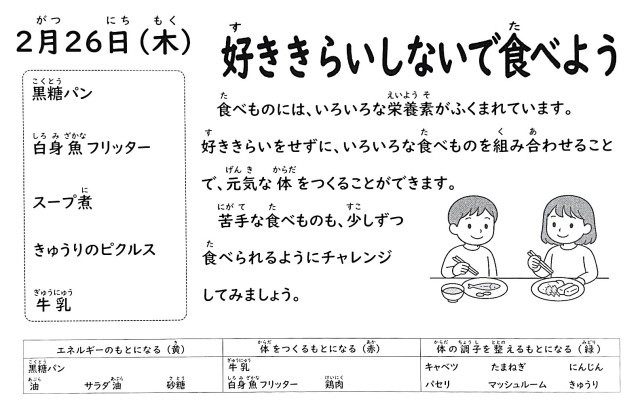 2月26日(木)
黒糖パン
白身魚フリッター
スープ煮
きゅうりのピクルス
牛乳
好ききらいしないで食べよう
食べものには、いろいろな栄養素がふくまれています。
好ききらいをせずに、いろいろな食べものを組み合わせること
で、元気な体をつくることができます。
苦手な食べものも、少しずつ
食べられるようにチャレンジ
してみましょう。
エネルギーのもとになる(黄)
黒糖パン
油 サラダ油 砂糖
体をつくるもとになる(赤)
牛乳
白身魚フリッター 鶏肉
体の調子を整えるもとになる(緑)
キャベツ たまねぎ にんじん
パセリ マッシュルーム きゅうり